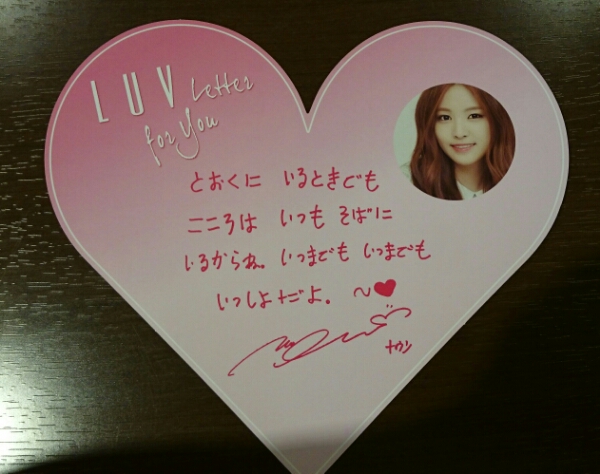 LUV Letter
for You
とおくに いるときでも
こころは いつも そばに
いるからね。いつまでも いつまでも
いっしょだよ。 〜♥
ナウン